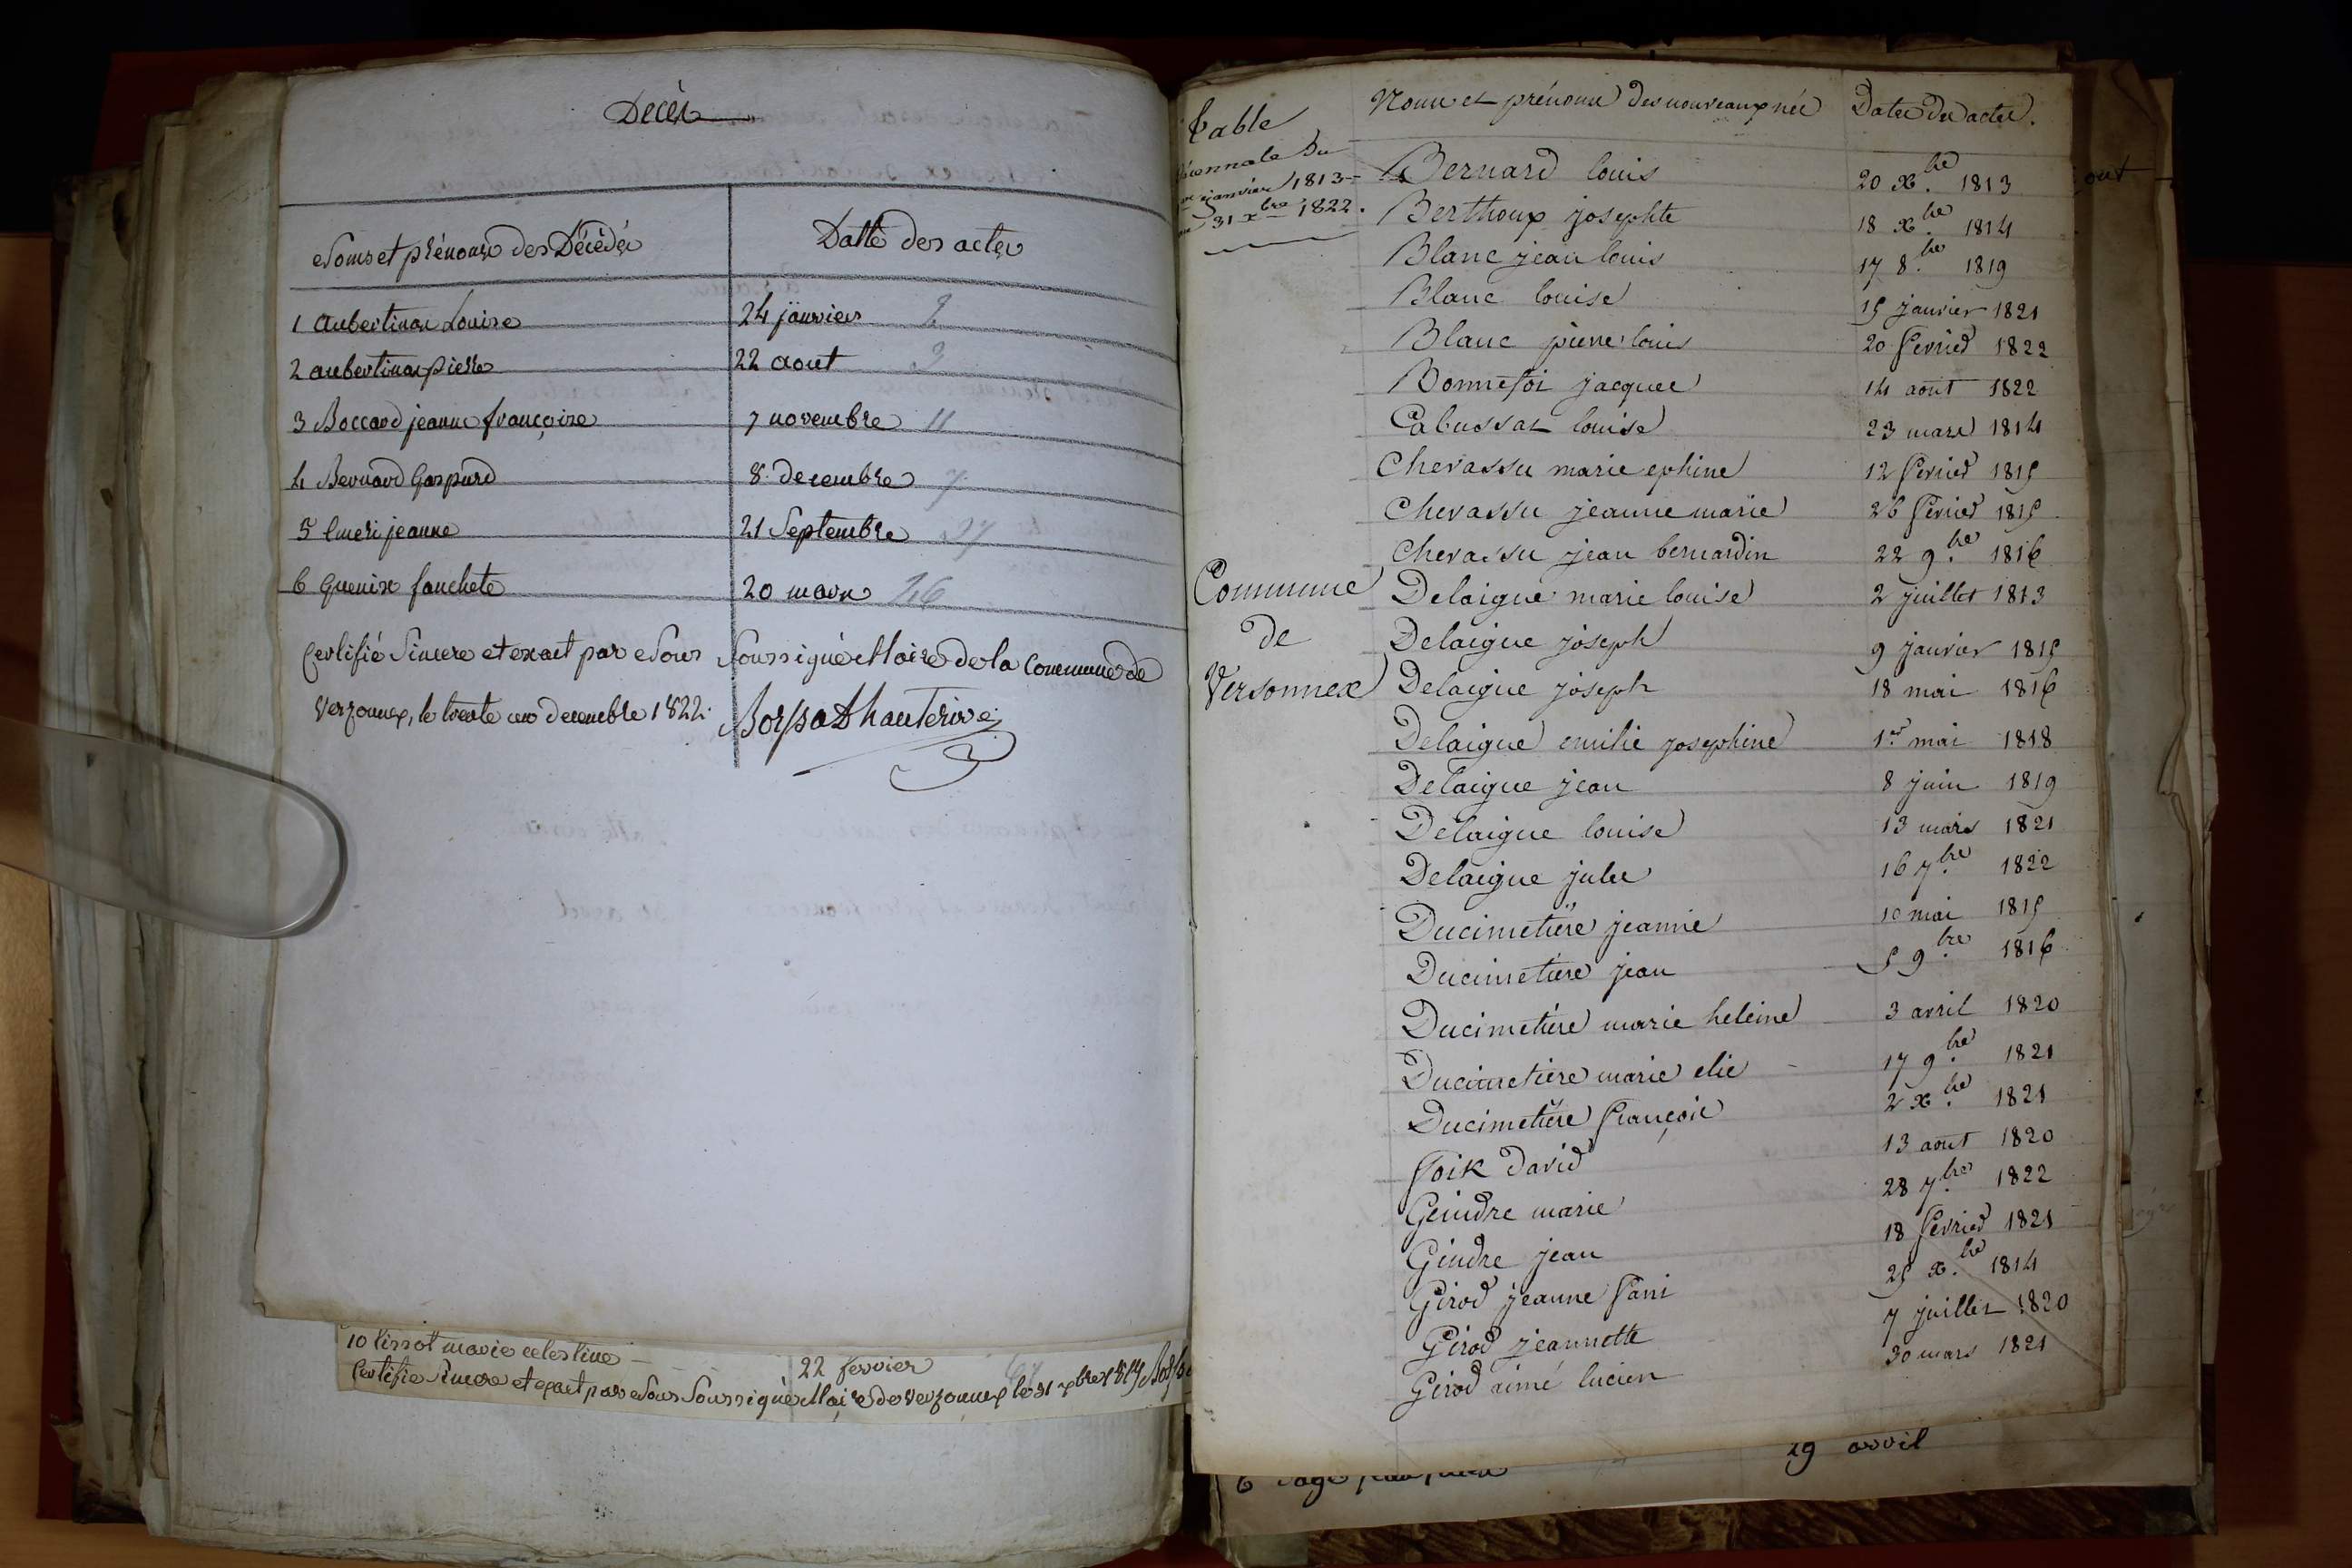 Décès
Noms et prénoms des Décédés Datte des actes
1 aubertinax Louise 24 janvier 2
2 aubertinax pierre 22 aout
3 Boccard jeanne françoise 7 novembre 11
4 Bernard Gaspard 8 decembre 7
5 Emeri jeanne 21 Septembre 27
6 Guenix fanchete 20 mars
Certifié Sincere et exact par Nous Soussigné Maire de la Commune de
Verzonnex, le trente un decembre 1822. Borssat Dhauterive
10 tissot marie celestine 22 fevrier
Certifie Sincere et exact par Nous Soussigné Maire de verzonnex le 31 xbre
Table
décennale du
janvier 1813
31 xbre 1822.
Commune
de
Versonnex
Noms et prénoms des nouveaux nés Dates des actes.
Bernard louis 20 xbre 1813
Berthoux josephte 18 xbre 1814
Blanc jean louis 17 8bre 1819
Blanc louise 15 janvier 1821
Blanc pierre louis 20 Fevrier 1822
Bonnefoi jacques 14 août 1822
Cabussat louise 23 mars 1814
Chevassu marie ephine 12 Fevrier 1815
Chevassu jeanne marie 26 Fevrier 1815
Chevassu jean bernardin 22 9bre 1816
Delaigue marie louise 2 juillet 1813
Delaigue joseph 9 janvier 1815
Delaigue joseph 18 mai 1816
Delaigue emilie josephine 1er mai 1818
Delaigue jean 8 juin 1819
Delaigue louise 13 mars 1821
Delaigue jules 16 7bre 1822
Ducimetière jeanne 10 mai 1815
Ducimetière jean 5 9bre 1816
Ducimetière marie heleine 3 avril 1820
Ducimetière marie elie 17 9bre 1821
Ducimetière François 2 xbre 1821
Foik David 13 aout 1820
Geindre marie 28 7bre 1822
Gindre jean 18 Fevrier 1821
Girod jeanne Fani 25 xbre 1814
Girod jeannette 7 juillet 1820
Girod aimé lucien 30 mars 1821
29 avril